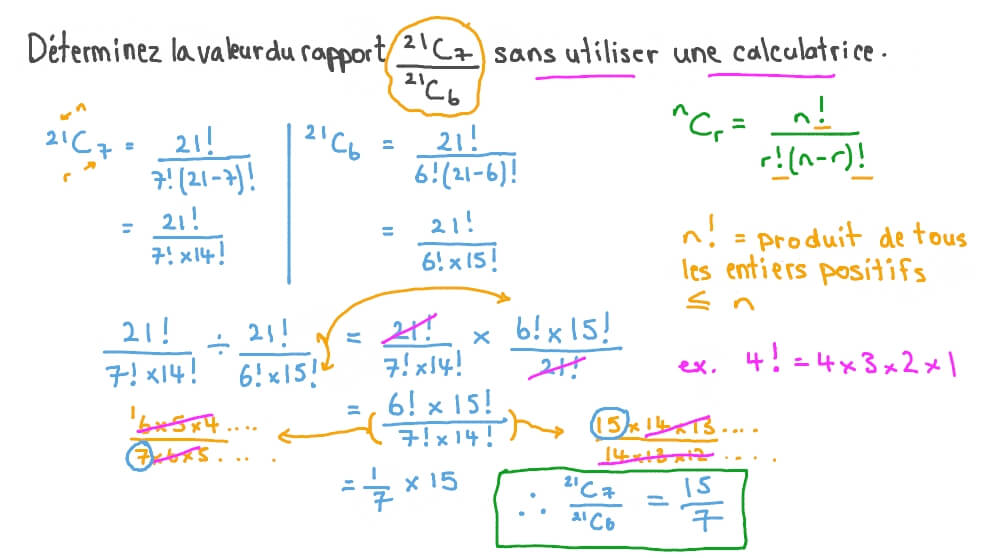 Déterminez la valeur du rapport ²¹C₇/²¹C₆ sans utiliser une calculatrice.
n
²¹C₇ = 21!/7!(21-7)!
r
= 21!/7!×14!
²¹C₆ = 21!/6!(21-6)!
= 21!/6!×15!
ⁿCᵣ = n!/r!(n-r)!
n! = produit de tous
les entiers positifs
≤ n
ex. 4! = 4×3×2×1
21!/7!×14! ÷ 21!/6!×15! = 21!/7!×14! × 6!×15!/21!
= (6!×15!/7!×14!)
1
6×5×4..../7×6×5....
15×14×13..../14×13×12....
= 1/7 × 15
∴ ²¹C₇/²¹C₆ = 15/7